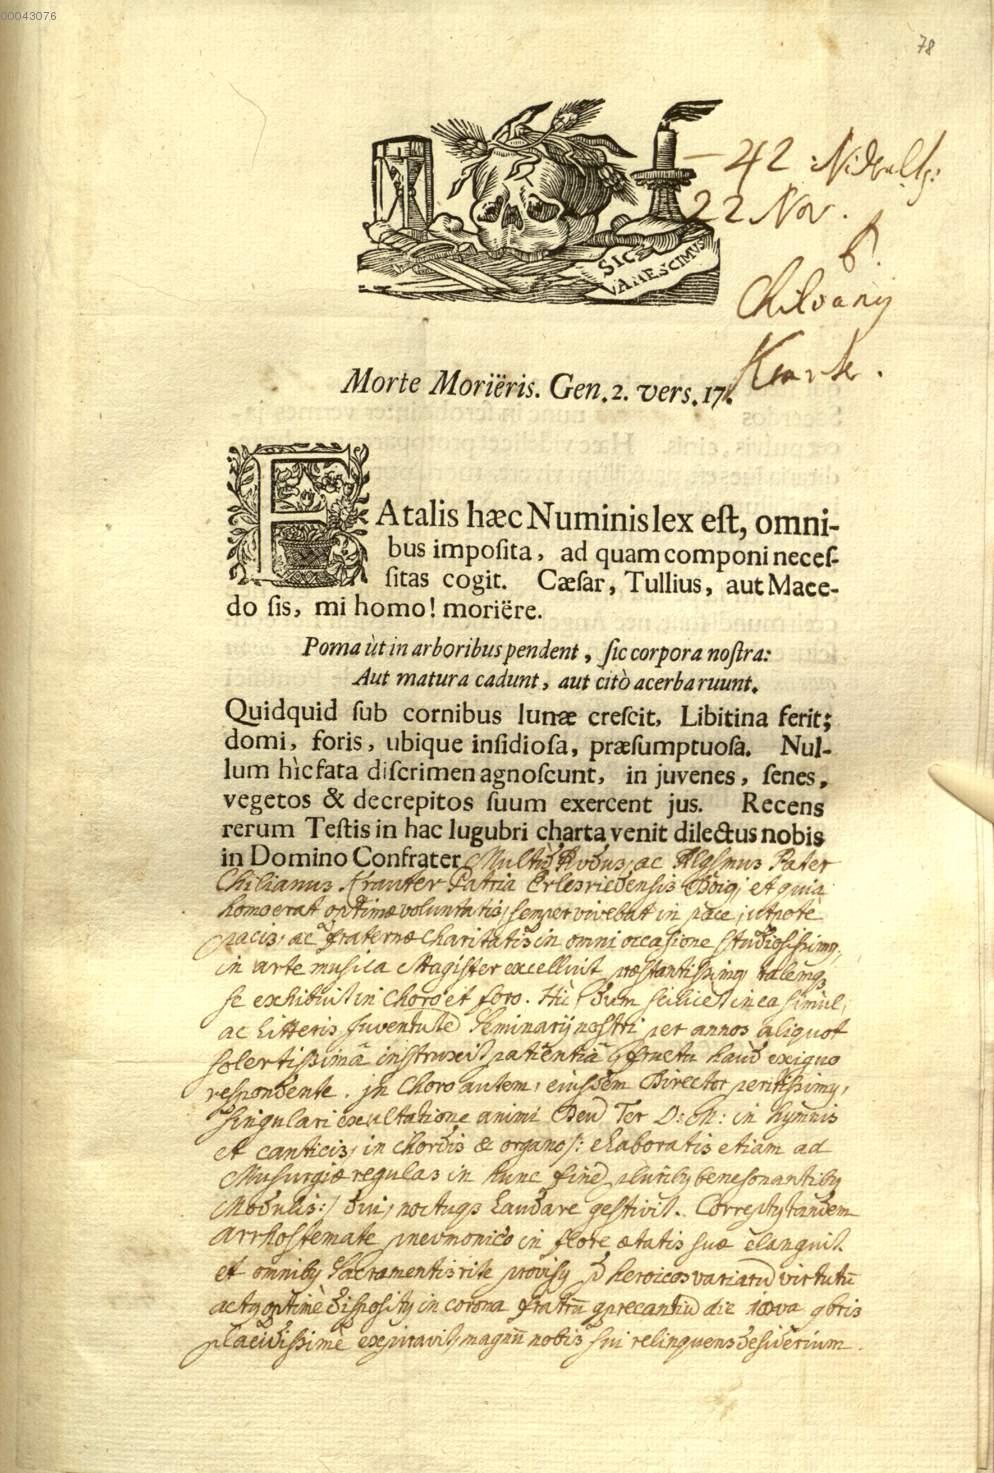 00043076
78
SIC
VANESCIMUS
42
22 Nov.
Chiliany
Morte Moriëris. Gen. 2. vers. 17.
FAtalis hæc Numinis lex eſt, omni-
bus impoſita, ad quam componi neceſ-
ſitas cogit. Cæſar, Tullius, aut Mace-
do ſis, mi homo! moriëre.
Poma ùt in arboribus pendent, ſic corpora noſtra:
Aut matura cadunt, aut citò acerba ruunt.
Quidquid ſub cornibus lunæ creſcit, Libitina ferit;
domi, foris, ubique inſidioſa, præſumptuoſa. Nul-
lum hìc fata diſcrimen agnoſcunt, in juvenes, ſenes,
vegetos & decrepitos ſuum exercent jus. Recens
rerum Teſtis in hac lugubri charta venit dilectus nobis
in Domino Confrater ac Pater
Chilianus Krauter Patria et quia
homo erat optimæ voluntatis, semper vivebat in pace, utpote
pacis, ac fraternæ charitatis in omni occasione studiosissimy,
in arte musica Magister excelluit præstantissimy talemq
se exhibuit in choro et foro. Hic, dum scilicet in ea simul,
ac Litteris Juventutē Seminarij nostri per annos aliquot
solertissimâ instruxit patientiâ, fructu haud exiguo
respondente. In Choro autem, eiusdem Director peritissimy,
singulari exultatione animi Deū Ter O: M: in hymnis
et canticis, in chordis & organo /: elaboratis etiam ad
Musurgiæ regulas in hunc finē pluriby benesonantiby
Modulis :/ diu, noctuqs Laudare gestivit. Correpty tandem
arrhostemate pnevmonico in flore ætatis suæ elanguit
et omniby Sacramentis rite provisy heroicos variarū virtutū
acty optimè disposity in corona fratrū die
placidissimè expiravit, magnū nobis sui relinquens desiderium.